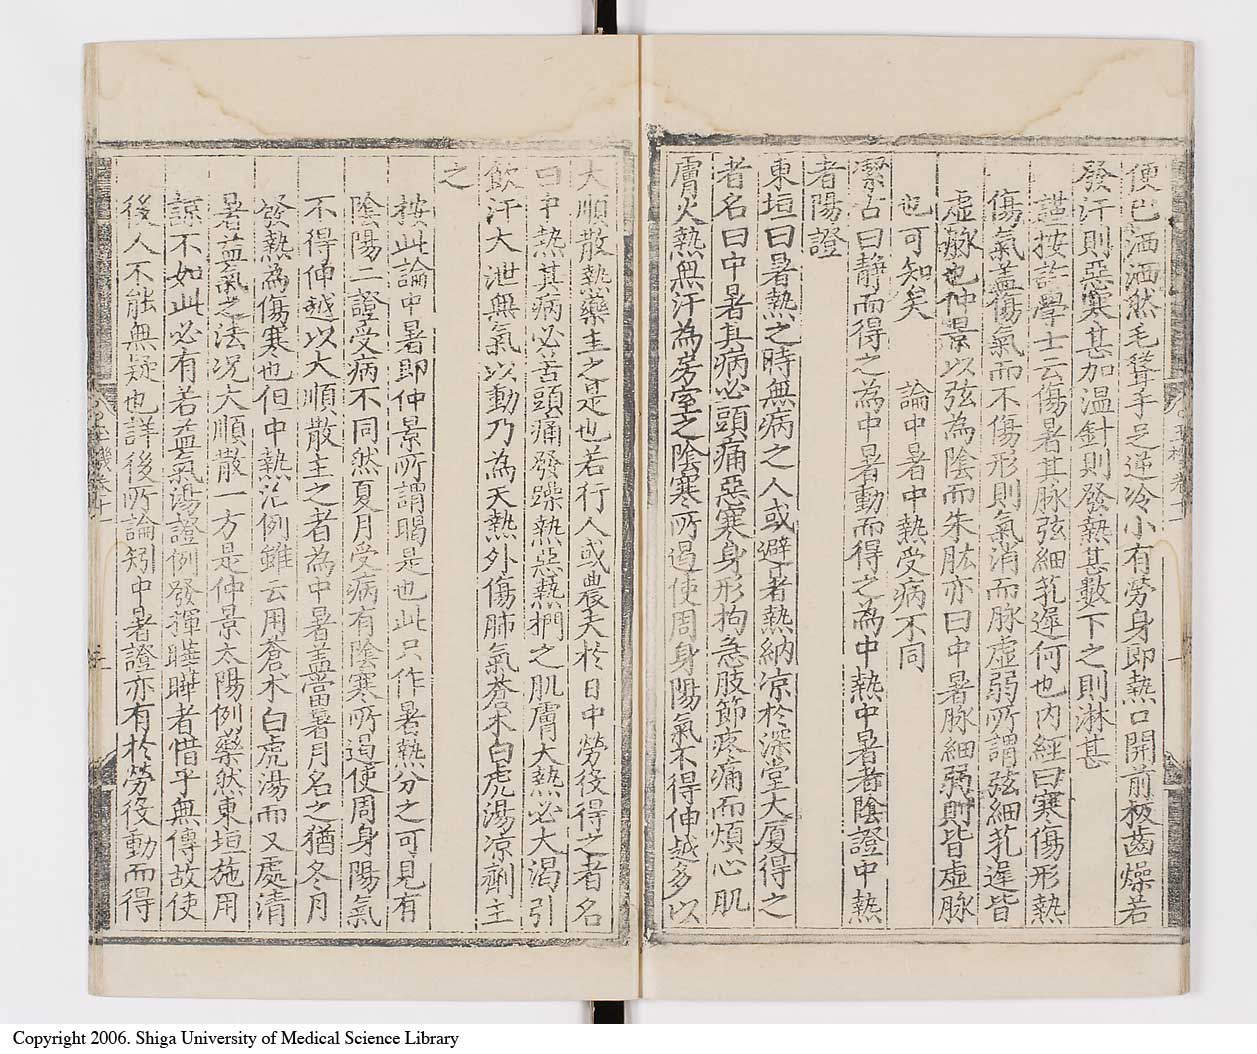 便已洒洒然毛聳手足逆冷小有勞身即熱口開前板齒燥若
發汗則惡寒甚加温針則發熱甚數下之則淋甚
謹按許學士云傷暑其脉弦細芤遲何也内經曰寒傷形熱
傷氣盖傷氣而不傷形則氣消而脉虚弱所謂弦細芤遲皆
虚脉也仲景以弦為陰而朱肱亦曰中暑脉細弱則皆虚脉
也可知矣
論中暑中熱受病不同
潔古曰靜而得之為中暑動而得之為中熱中暑者陰證中熱
者陽證
東垣曰暑熱之時無病之人或避暑熱納凉於深堂大厦得之
者名曰中暑其病必頭痛惡寒身形拘急肢節疼痛而煩心肌
膚火熱無汗為房室之陰寒所遏使周身陽氣不得伸越多以
大順散熱藥主之是也若行人或農夫於日中勞役得之者名
曰中熱其病必苦頭痛發躁熱惡熱捫之肌膚大熱必大渴引
飲汗大泄無氣以動乃為天熱外傷肺氣蒼术白虎湯凉劑主
之
按此論中暑即仲景所謂暍是也此只作暑熱分之可見有
陰陽二證受病不同然夏月受病有陰寒所遏使周身陽氣
不得伸越以大順散主之者為中暑盖當暑月名之猶冬月
發熱為傷寒也但中熱治例雖云用蒼术白虎湯而又處清
暑益氣之法况大順散一方是仲景太陽例藥然東垣施用
諒不如此必有若益氣湯證例發揮曄曄者惜乎無傳故使
後人不能無疑也詳後所論矧中暑證亦有於勞役動而得